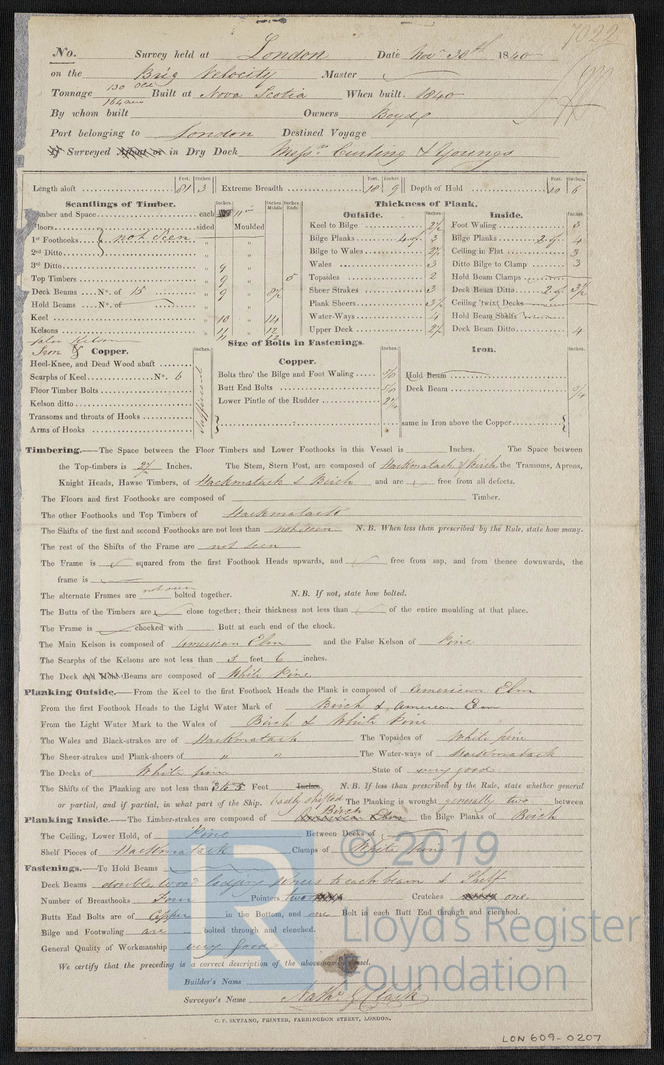 7022
No. Survey held at London Date Nov 30th 1840
on the Brig Velocity Master
Tonnage 130 old 164 new Built at Nova Scotia When built 1840
By whom built Owners Boyd
Port belonging to London Destined Voyage
Surveyed in Dry Dock Messrs Curling & Youngs
Feet. Inches. Feet. Inches. Feet. Inches.
Length aloft 81 3 Extreme Breadth 18 9 Depth of Hold 10 6
Scantlings of Timber. Thickness of Plank.
Outside. Inside.
Timber and Space each
Floors sided Moulded
1st Foothooks not seen
2nd Ditto
3rd Ditto 9
Top Timbers 9 5
Deck Beams No. of 15 9
Hold Beams No. of
Keel 10 14
Kelsons 11 12
false Kelson
Keel to Bilge
Bilge Planks 3
Bilge to Wales
Wales 3
Topsides 2
Sheer Strakes 3
Plank Sheers
Water-Ways 4
Upper Deck
Foot Waling 3
Bilge Planks 4
Ceiling in Flat 3
Ditto Bilge to Clamp 3
Hold Beam Clamps
Deck Beam Ditto
Ceiling 'twixt Decks
Hold Beam Shelfs
Deck Beam Ditto 4
Size of Bolts in Fastenings.
Iron & Copper. Copper. Iron.
Heel-Knee, and Dead Wood abaft
Scarphs of Keel No. 6
Floor Timber Bolts
Kelson ditto
Transoms and throats of Hooks
Arms of Hooks
sufficient
Bolts thro' the Bilge and Foot Waling
Butt End Bolts
Lower Pintle of the Rudder
Hold Beam
Deck Beam
same in Iron above the Copper
Timbering.—The Space between the Floor Timbers and Lower Foothooks in this Vessel is Inches. The Space between
the Top-timbers is Inches. The Stem, Stern Post, are composed of Hackmatack & Birch the Transoms, Aprons,
Knight Heads, Hawse Timbers, of Hackmatack & Birch and are free from all defects.
The Floors and first Foothooks are composed of Timber.
The other Foothooks and Top Timbers of Hackmatack
The Shifts of the first and second Foothooks are not less than not seen N.B. When less than prescribed by the Rule, state how many.
The rest of the Shifts of the Frame are not seen
The Frame is squared from the first Foothook Heads upwards, and free from sap, and from thence downwards, the
frame is
The alternate Frames are not seen bolted together. N.B. If not, state how bolted.
The Butts of the Timbers are close together; their thickness not less than of the entire moulding at that place.
The Frame is chocked with Butt at each end of the chock.
The Main Kelson is composed of American Elm and the False Kelson of Pine
The Scarphs of the Kelsons are not less than 5 feet 6 inches.
The Deck Beams are composed of White Pine
Planking Outside.—From the Keel to the first Foothook Heads the Plank is composed of American Elm
From the first Foothook Heads to the Light Water Mark of Birch & American Elm
From the Light Water Mark to the Wales of Birch & White Pine
The Wales and Black-strakes are of Hackmatack The Topsides of White pine
The Sheer-strakes and Plank-sheers of " " The Water-ways of Hackmatack
The Decks of White pine State of very good
The Shifts of the Planking are not less than Feet Inches. N.B. If less than prescribed by the Rule, state whether general
or partial, and if partial, in what part of the Ship. badly shifted The Planking is wrought generally two between
Planking Inside.—The Limber-strakes are composed of Birch the Bilge Planks of Birch
The Ceiling, Lower Hold, of Pine Between Decks of
Shelf Pieces of Hackmatack Clamps of White pine
Fastenings.—To Hold Beams
Deck Beams double wood lodging knees to each beam & Shelf
Number of Breasthooks Four Pointers two Crutches one.
Butts End Bolts are of Copper in the Bottom, and one Bolt in each Butt End through and clenched.
Bilge and Footwaling are bolted through and clenched.
General Quality of Workmanship very good
We certify that the preceding is a correct description of the above-named Vessel.
Builder's Name
Surveyor's Name Nathl G Clark
C. F. SKYFANG, PRINTER, FARRINGDON STREET, LONDON.
© 2019
Lloyd's Register
Foundation
LON 609-0207